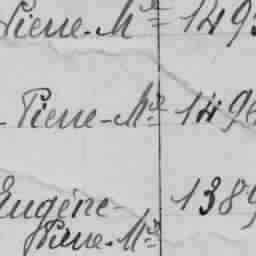 Pierre-Mie 149
- Pierre-Mie 1496
Eugène- 1389
Pierre-Mie